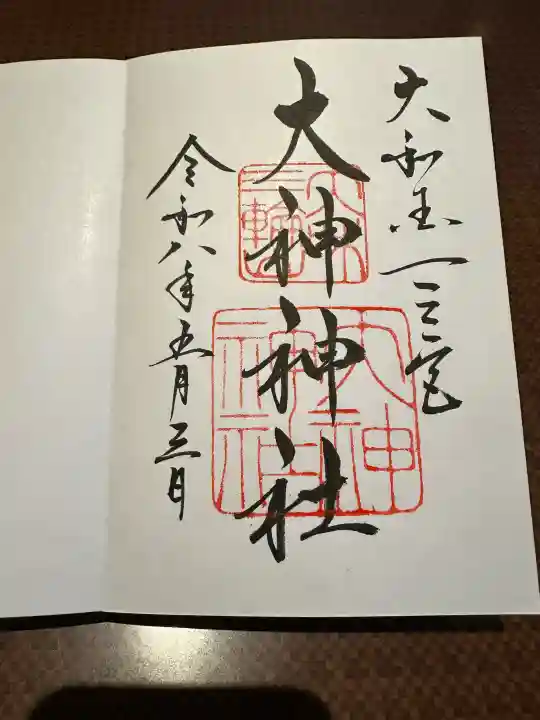 大和国一之宮
大神神社
三輪
大神神社
令和八年五月三日